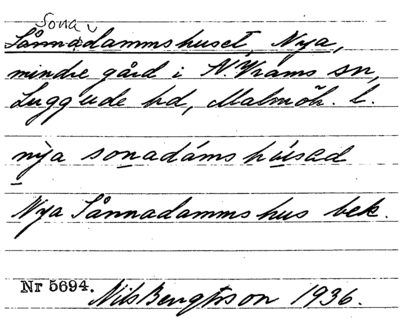 Sona
Sånnadammshuset, Nya,
mindre gård i N. Vrams sn,
Luggude hd, Malmöh. l.
nỳa sonadámshúisad
Nya Sånnadamms hus bek.
Nr 5694. Nils Bengtsson 1936.